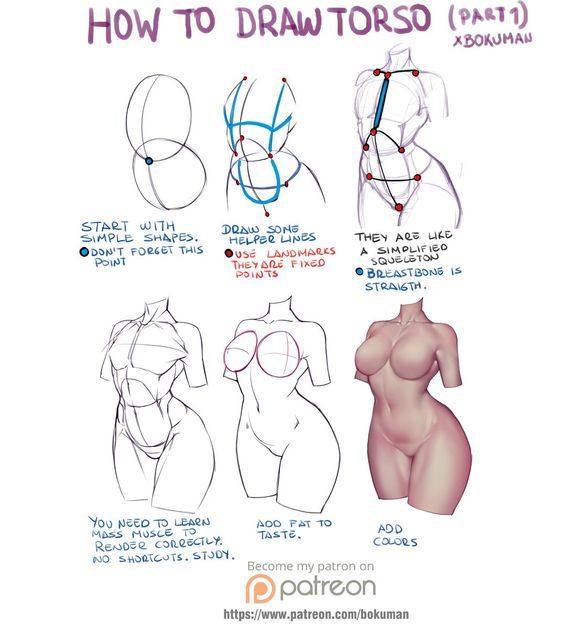 HOW TO DRAW TORSO (PART 1)
XBOKUMAN
START WITH
SIMPLE SHAPES.
DON'T FORGET THIS
POINT
DRAW SOME
HELPER LINES
USE LANDMARKS
THEY ARE FIXED
POINTS
THEY ARE LIKE
A SIMPLIFIED
SQUELETON
BREASTBONE IS
STRAIGTH.
YOU NEED TO LEARN
MASS MUSCLE TO
RENDER CORRECTLY.
NO SHORTCUTS. STUDY.
ADD FAT TO
TASTE.
ADD
COLORS
Become my patron on
patreon
https://www.patreon.com/bokuman